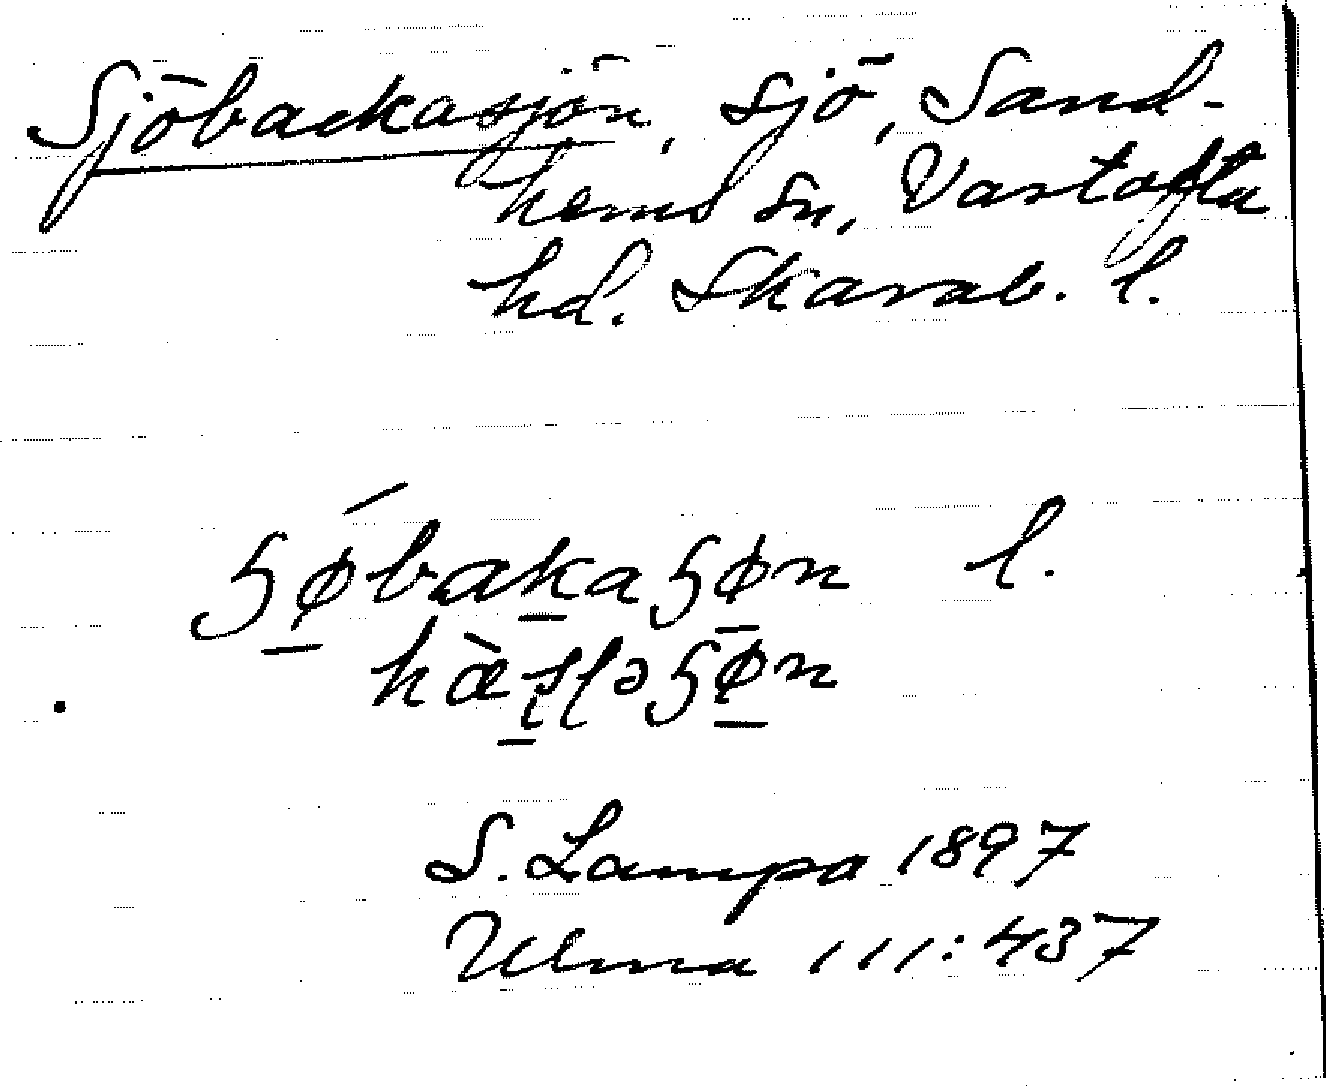 Sjöbackasjön, sjö, Sand-
hems sn, Vartofta
hd. Skarab. l.
ɧǿ̱baḵaɧø̱n l.
hæ̀s̱ləɧø̱n
S. Lampa 1897
Ulma 111:437